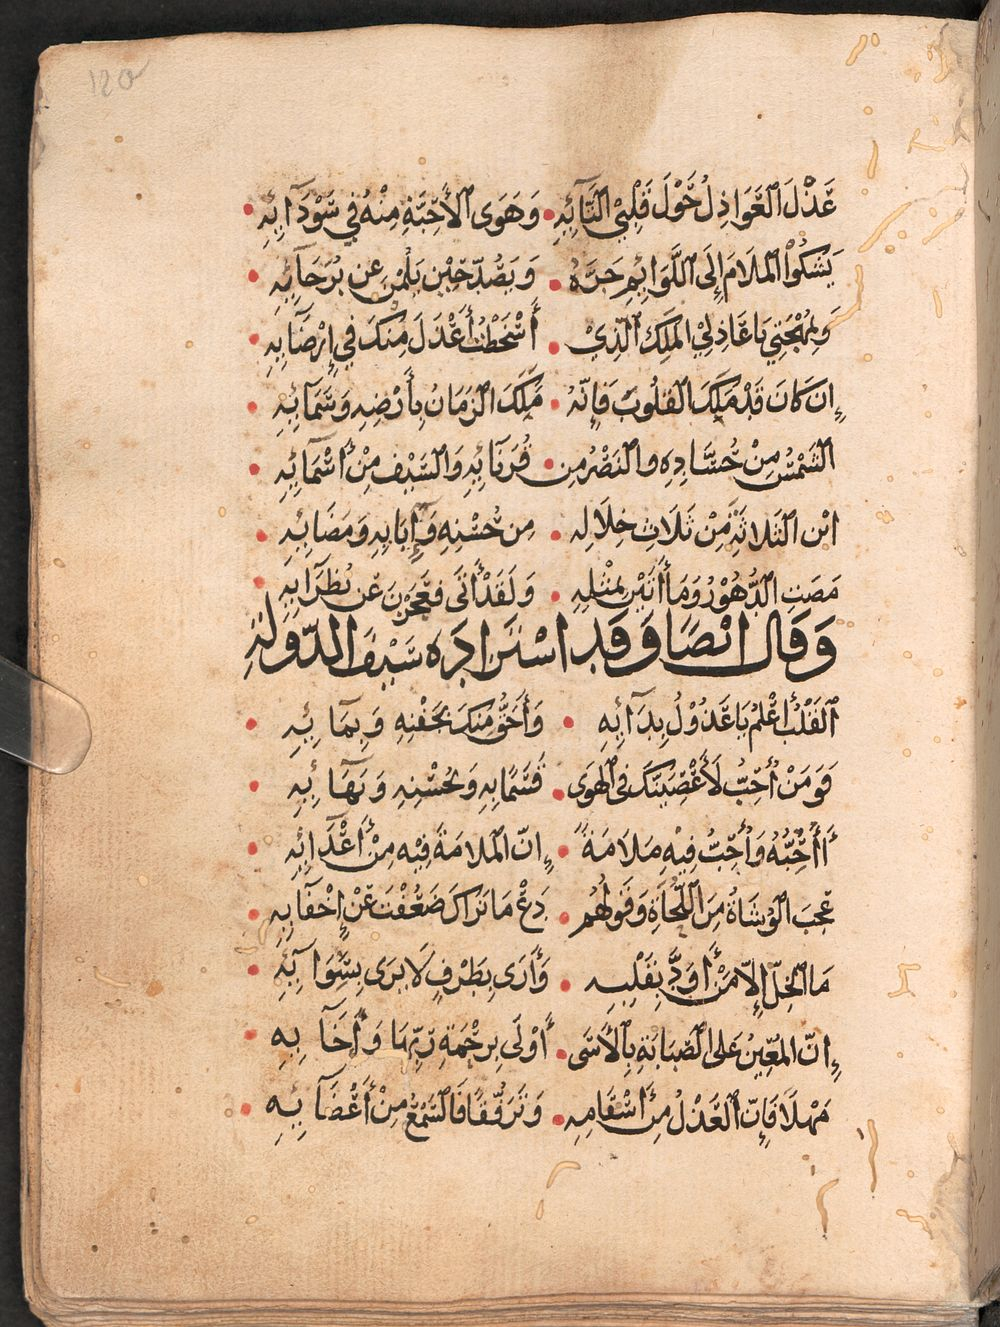 120
عَذْلَ العَوَاذِلُ حَوْلَ قَلْبِيْ التَّآئِهِ • وَهَوَى الأَحِبَّةِ مِنْهُ فِي سَوْدَآئِهِ •
يَشكُوْ المَلَامَ إِلَى اللَّوَائِمِ حَرَّهُ • وَيَصُدّ حِيْن يَلُمْنَ عن بُرَحَآئِهِ •
وَبِمُهْجَتِي يَا عَاذِلِيْ المَلِكُ الَّذِيْ • أَسْخَطْتُ أَعْذَلَ مِنْكَ فِي إِرْضَآئِهِ •
إِن كَانَ قَدْ مَلَكَ القُلُوْبَ فَإِنَّهُ • مَلَكَ الزَمَانُ بِأَرْضِهِ وَسَمَآئِهِ •
الشَمْسُ مِنْ حُسَّادِهِ والنَصْرُ مِن • قُرَنَآئِهِ وَالسَيْف مِنْ أَسْمَآئِهِ •
ايْن الثَلَاثَةُ مِنْ ثَلَاثِ خِلَالِه • مِن حُسْنِهِ وَإِبَائِهِ وَمَضَائِهِ •
مَضَتِ الدُّهُوْرُ وَمَا أَتَيْن بِمْثلِهِ • وَلَقَدْ أَتَى فعَجَزْنَ عَن نُظَرَآئِهِ •
وَقَال ايْضًا وَقَد اسْتَزَادَه سَيْفُ الدّوْلَةِ
القَلْبُ أَعْلمُ يَا عَذُوْلُ بِدَآئِهِ • وَأَحَقُّ مِنكَ بجَفْنِهِ وَبِمَائِهِ •
فَوَمَنْ أُحِبُّ لَأَعْصِيَنَّكَ فِى الهَوَى • قَسَمًا بِهِ وَبحُسْنِهِ وَبَهَآئِهِ •
أَأُحِبُّهُ وَأُحِبُّ فِيْهِ مَلَامَةً • إِنّ المَلَامَةَ فِيْه مِنْ أَعْدَآئِهِ •
عَجِبَ الوُشَاةُ مِنَ اللُّحَاةِ وَقَوْلِهُم • دَعْ مَا نَرَاكَ ضَعُفْتَ عَنْ إِخْفَآئِهِ •
مَا الخِلّ إِلّا مَنْ أَوَدُّ بِقَلْبِه • وَأَرَى بِطَرْفٍ لَا يرَى بِسَوَآئِهِ •
إِنّ المُعِيْنَ عَلى الصَّبَابَةِ بِالأَسَى • أَوْلَى بِرَحْمَةِ رَبِّهَا وَأَخَآئِه •
مَهْلًا فَإِنّ العَذْلَ مِنْ أَسْقَامِهِ • وَتَرَفّقًا فَالسَمْعُ مِنْ أَعْضَآئِهِ •